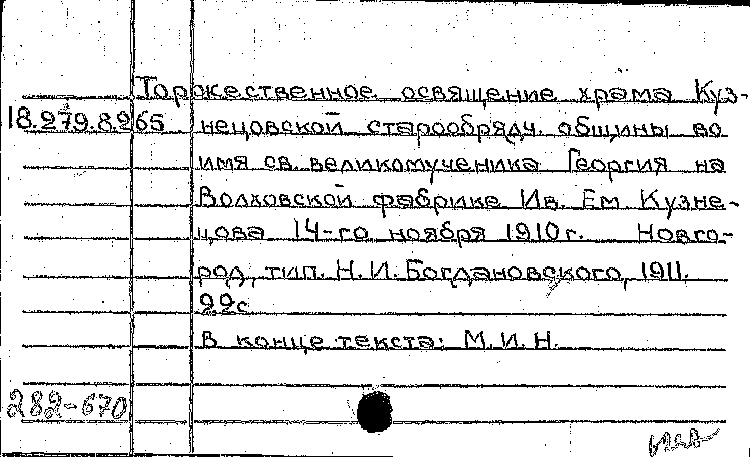 Торжественное освящение храма Куз-
18.279.8265 нецовской старообрядч. общины во
имя св. великомученика Георгия на
Волховской фабрике Ив. Ем. Кузне-
цова 14-го ноября 1910 г. Новго-
род, тип. Н. И. Богдановского, 1911.
22 с.
В конце текста: М. И. Н.
282-670